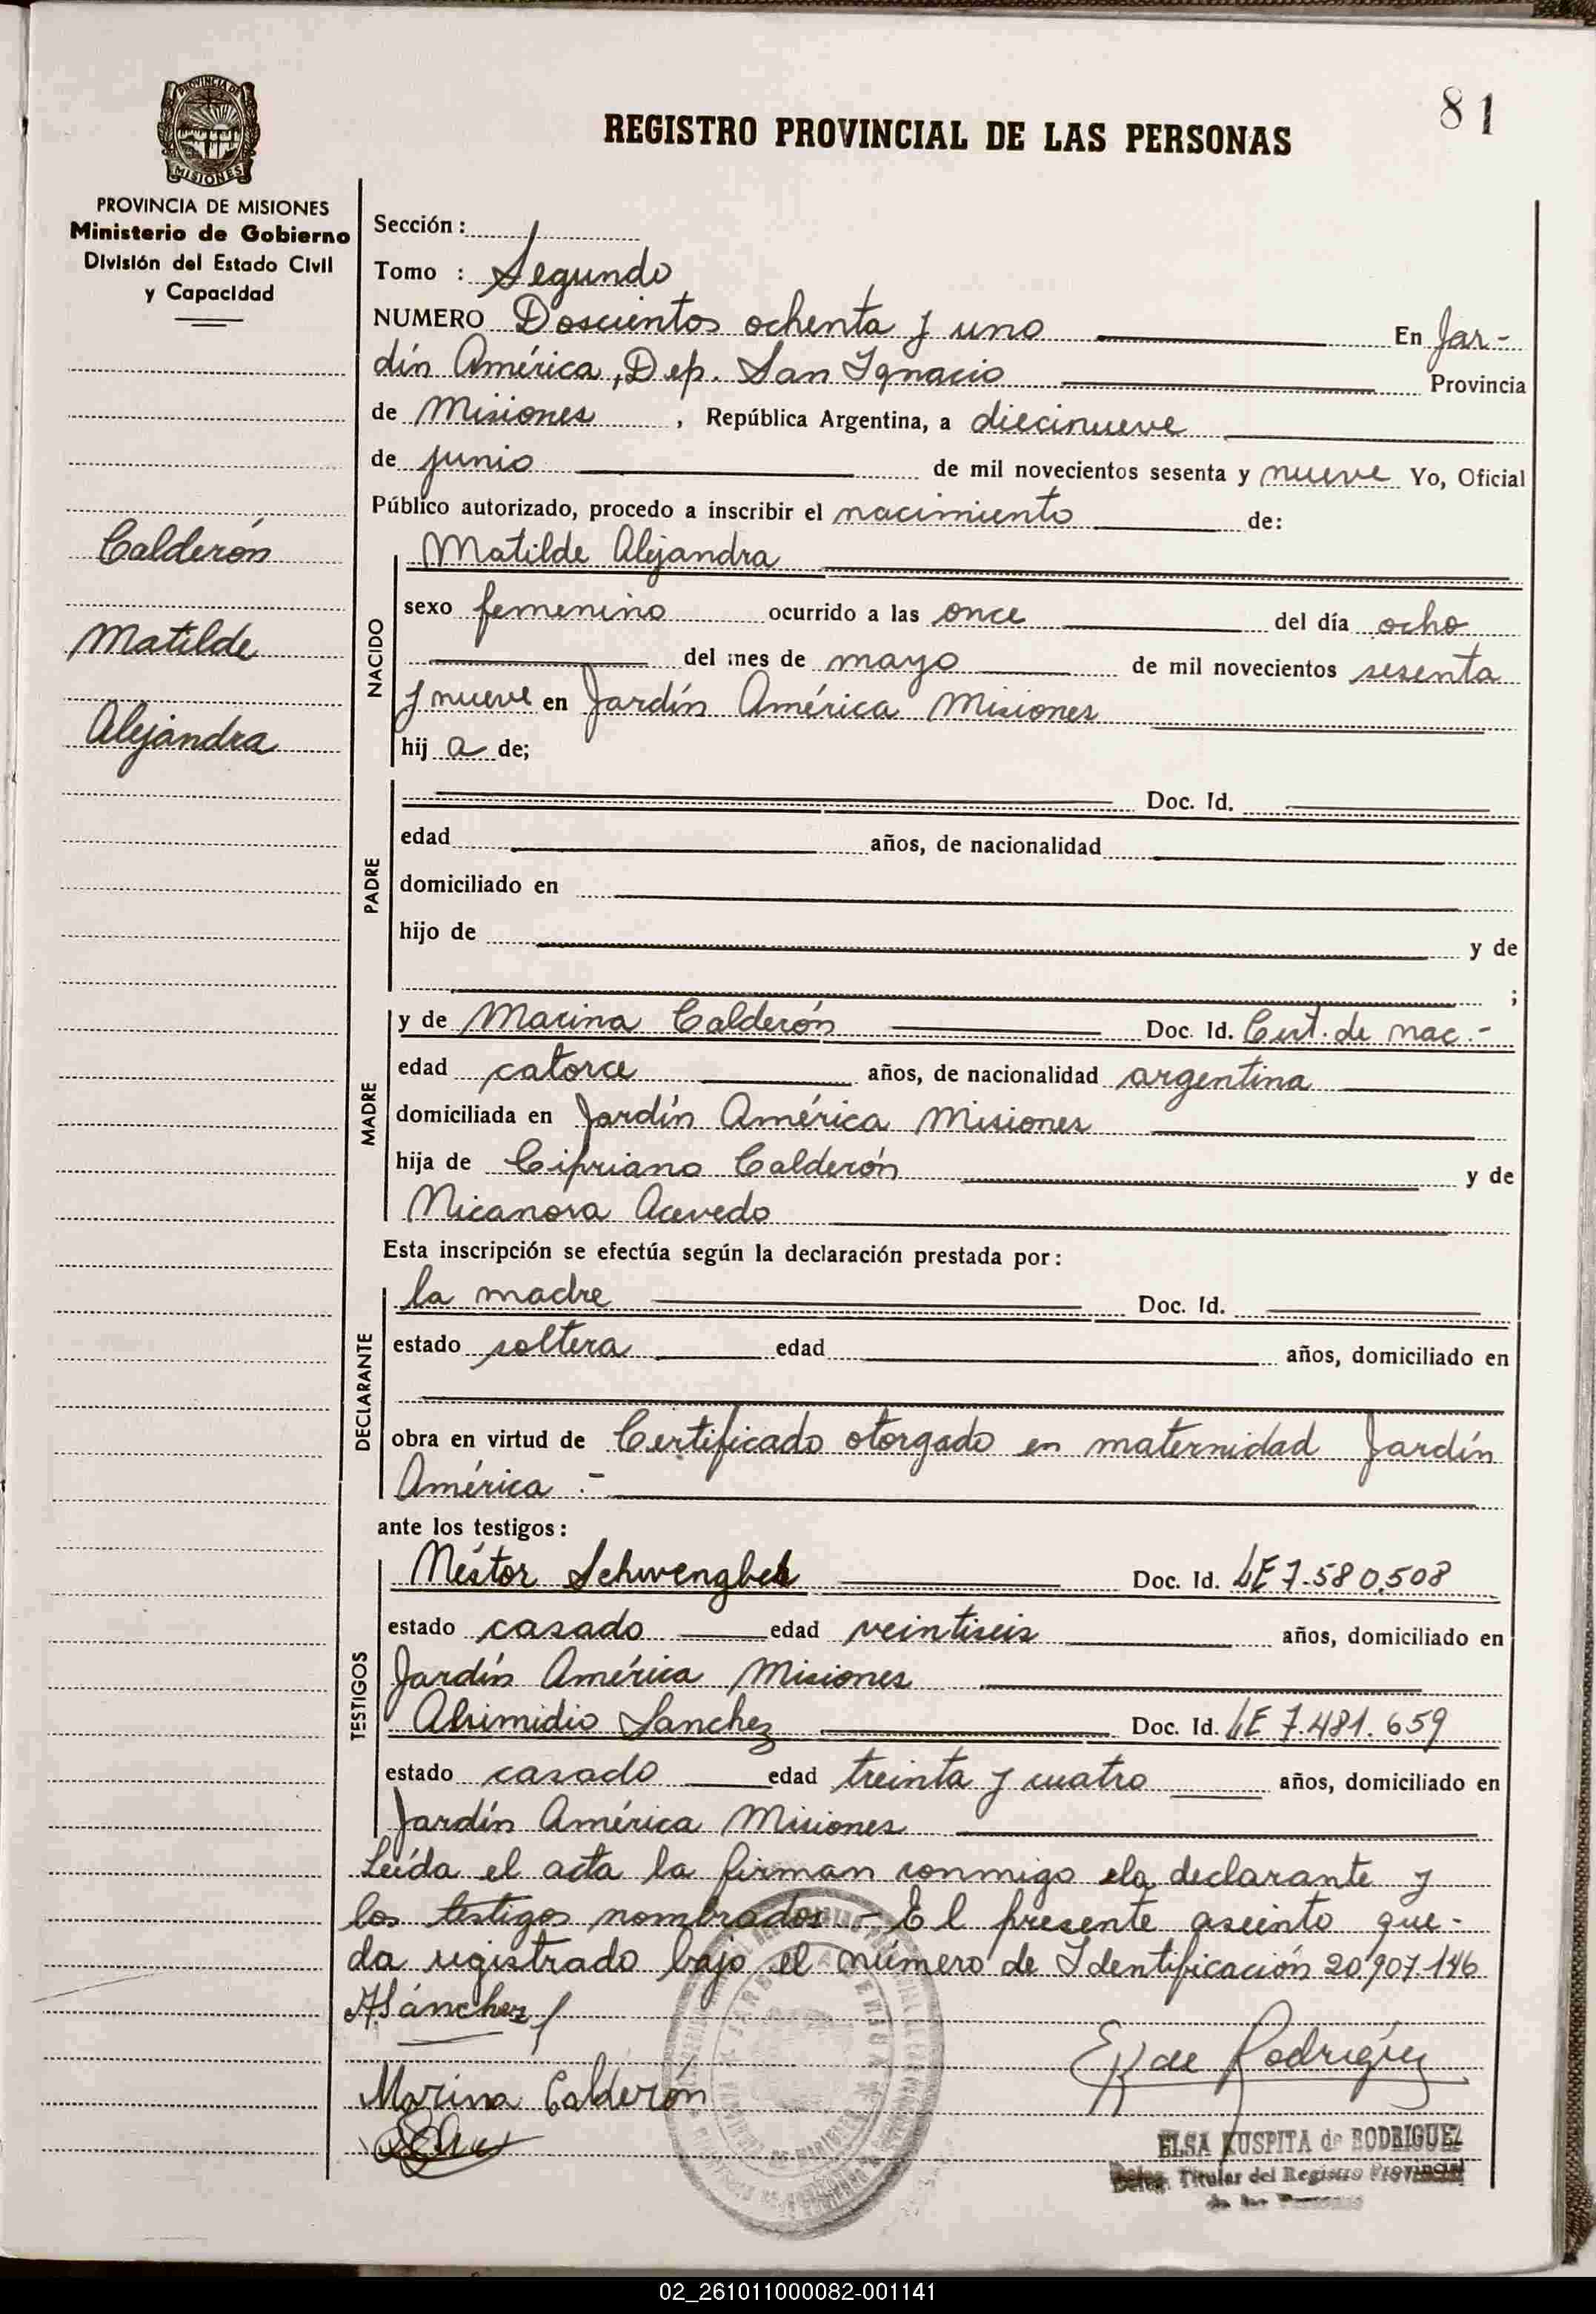 81
REGISTRO PROVINCIAL DE LAS PERSONAS
PROVINCIA DE
MISIONES
PROVINCIA DE MISIONES
Ministerio de Gobierno
División del Estado Civil
y Capacidad
Calderón
Matilde
Alejandra
Sección:
Tomo : Segundo
NUMERO Doscientos ochenta y uno En Jar-
dín América, Dep. San Ignacio Provincia
de Misiones, República Argentina, a diecinueve
de junio de mil novecientos sesenta y nueve Yo, Oficial
Público autorizado, procedo a inscribir el nacimiento de:
NACIDO
Matilde Alejandra
sexo femenino ocurrido a las once del día ocho
del mes de mayo de mil novecientos sesenta
y nueve en Jardín América Misiones
hij a de;
PADRE
Doc. Id.
edad años, de nacionalidad
domiciliado en
hijo de y de
;
MADRE
y de Marina Calderón Doc. Id. Cert. de nac.-
edad catorce años, de nacionalidad argentina
domiciliada en Jardín América Misiones
hija de Cipriano Calderón y de
Nicanora Acevedo
Esta inscripción se efectúa según la declaración prestada por:
DECLARANTE
la madre Doc. Id.
estado soltera edad años, domiciliado en
obra en virtud de Certificado otorgado en maternidad Jardín
América .-
ante los testigos:
TESTIGOS
Néstor Schwengber Doc. Id. LE 7.580.508
estado casado edad veintiseis años, domiciliado en
Jardín América Misiones
Sanchez Doc. Id. LE 7.481.659
estado casado edad treinta y cuatro años, domiciliado en
Jardín América Misiones
Leída el acta la firman conmigo la declarante y
los testigos nombrados.- El presente asiento que-
da registrado bajo el número de Identificación 20.907.146
A. Sánchez
Rodríguez
Marina Calderón
ELSA KUSPITA de RODRIGUEZ
Deleg. Titular del Registro Provincial
de las Personas
02_261011000082-001141